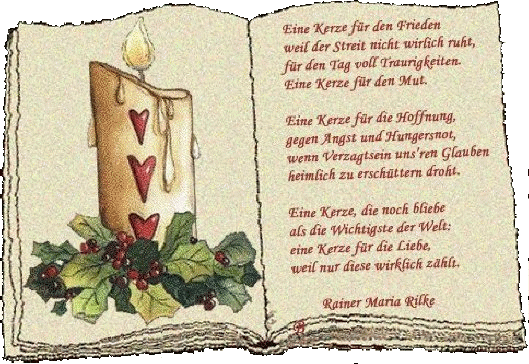 Eine Kerze für den Frieden
weil der Streit nicht wirlich ruht,
für den Tag voll Traurigkeiten.
Eine Kerze für den Mut.
Eine Kerze für die Hoffnung,
gegen Angst und Hungersnot,
wenn Verzagtsein uns'ren Glauben
heimlich zu erschüttern droht.
Eine Kerze, die noch bliebe
als die Wichtigste der Welt:
eine Kerze für die Liebe,
weil nur diese wirklich zählt.
Rainer Maria Rilke